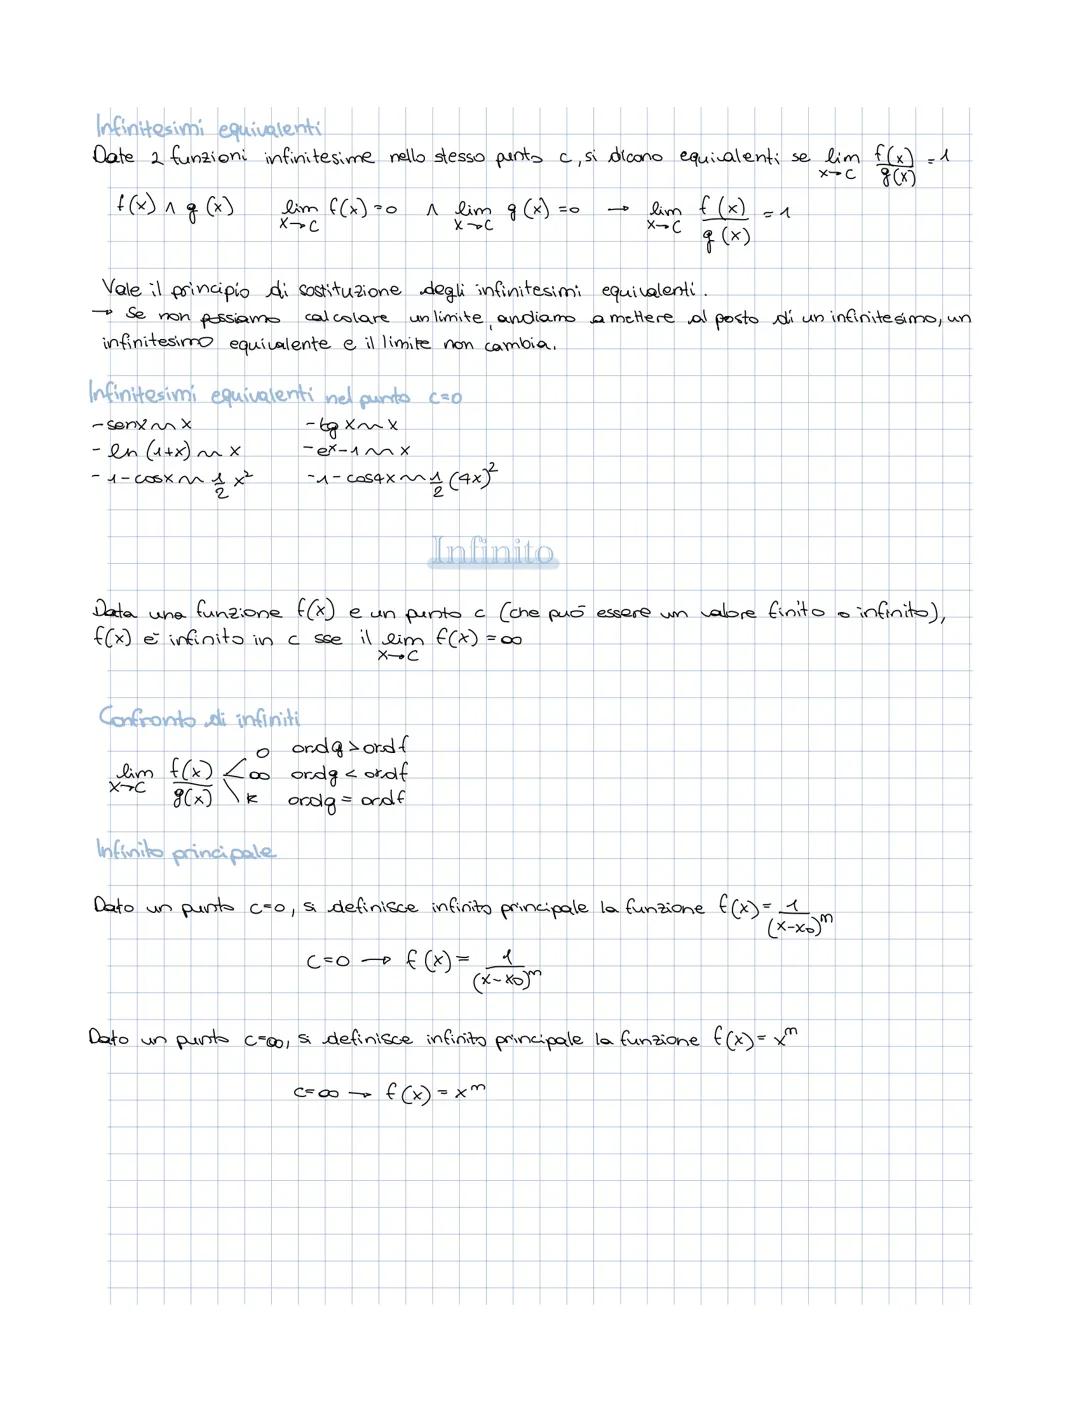 Infinitesimi equivalenti
Date 2 funzioni infinitesime nello stesso punto c, si dicono equivalenti se lim x→c f(x)/g(x) = 1
f(x) ∧ g(x) lim x→c f(x) = 0 ∧ lim x→c g(x) = 0 → lim x→c f(x)/g(x) = 1
Vale il principio di sostituzione degli infinitesimi equivalenti.
→ Se non possiamo calcolare un limite, andiamo a mettere al posto di un infinitesimo, un
infinitesimo equivalente e il limite non cambia.
Infinitesimi equivalenti nel punto c=0
- senx ~ x - tg x ~ x
- ln (1+x) ~ x - eˣ-1 ~ x
- 1-cosx ~ 1/2 x² - 1-cos4x ~ 1/2 (4x)²
Infinito
Data una funzione f(x) e un punto c (che può essere un valore finito o infinito),
f(x) è infinito in c sse il lim x→c f(x) = ∞
Confronto di infiniti
lim x→c f(x)/g(x) 0 ordg > ordf
∞ ordg < ordf
k ordg = ordf
Infinito principale
Dato un punto c=0, si definisce infinito principale la funzione f(x) = 1/(x-x₀)ᵐ
c=0 → f(x) = 1/(x-x₀)ᵐ
Dato un punto c=∞, si definisce infinito principale la funzione f(x) = xᵐ
c=∞ → f(x) = xᵐ